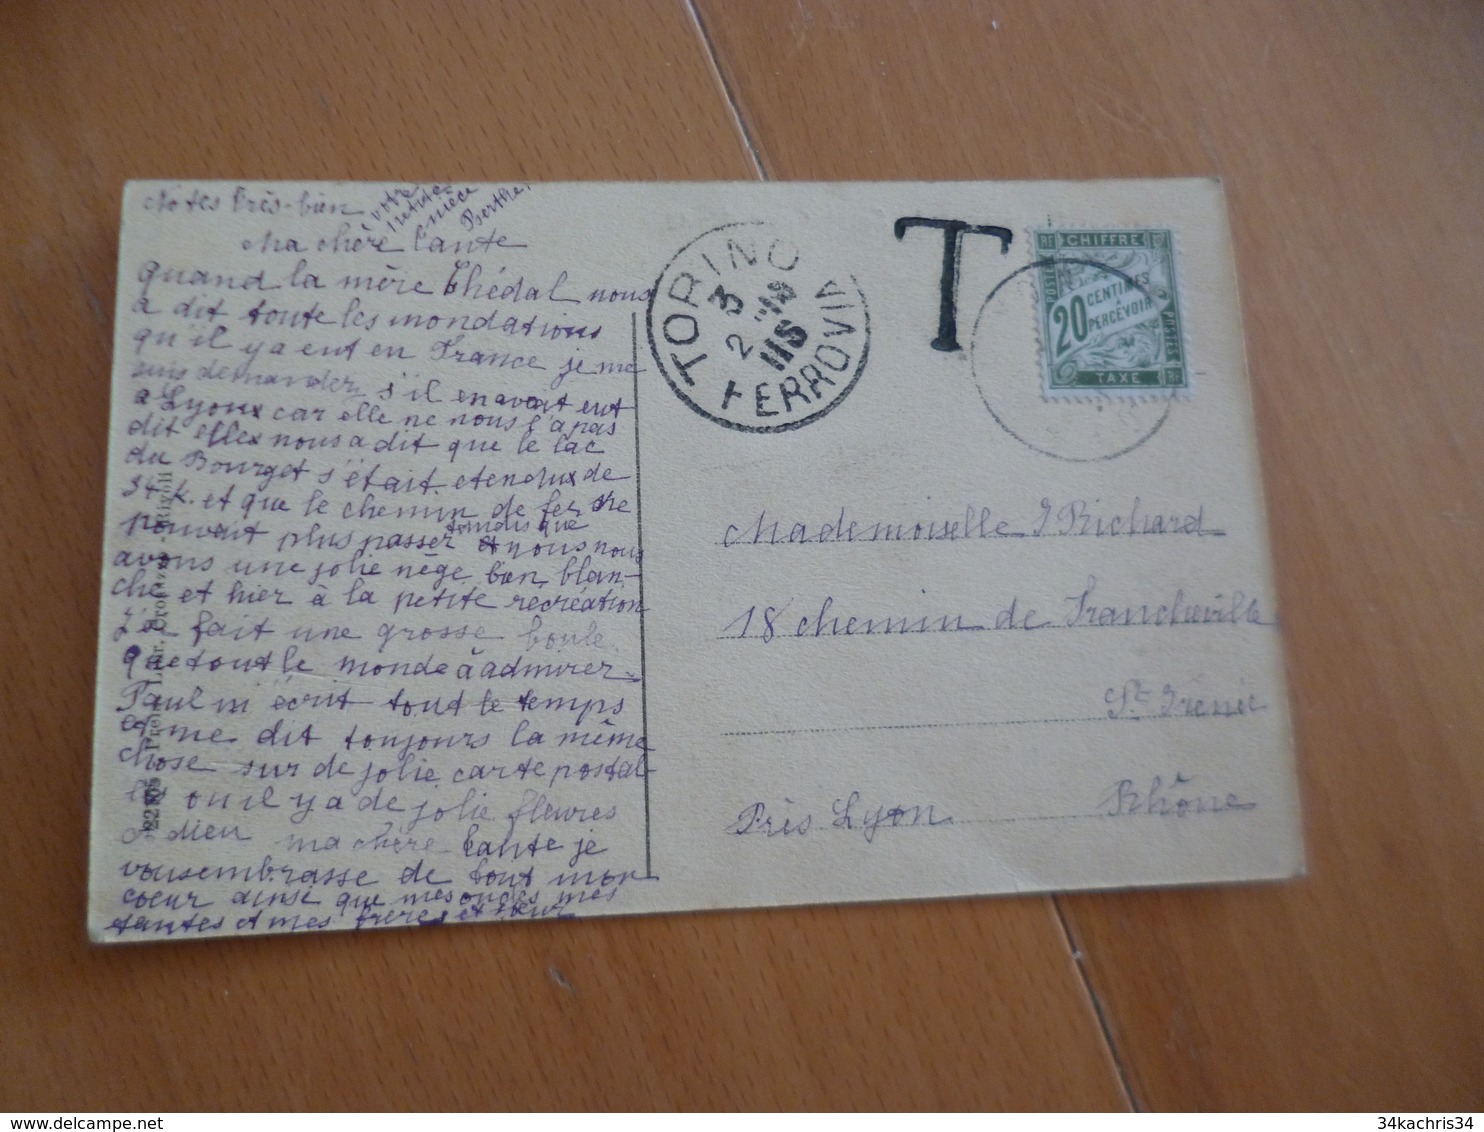 Notes très-bien
votre
petite
nièce
Berthe
Ma chère tante
Quand la mère Thédal nous
a dit toute les inondations
qu'il y a eut en France je me
suis demander s'il en avait eut
a Lyon car elle ne nous l'a pas
dit elle nous a dit que le lac
du Bourget s'était etendux de
34 k. et que le chemin de fer ne
pouvait plus passer tandis que nous nous
avons une jolie nège bien blan-
che et hier à la petite récréation
J'ai fait une grosse boule
que tout le monde à admirer
Paul m'écrit tout le temps
et me dit toujours la même
chose sur de jolie carte postal-
le ou il y a de jolie fleures
Adieu ma chère tante je
vous embrasse de tout mon
coeur ainsi que mes oncles mes
tantes et mes frères et soeur
TORINO
3
2
11S
FERROVIA
T
RF CHIFFRE
POSTES
20 CENTIMES
PERCEVOIR
POSTES
TAXE RF
Mademoiselle J Richard
18 chemin de Francheville
St Irénée
Près Lyon Rhône
34kachris34